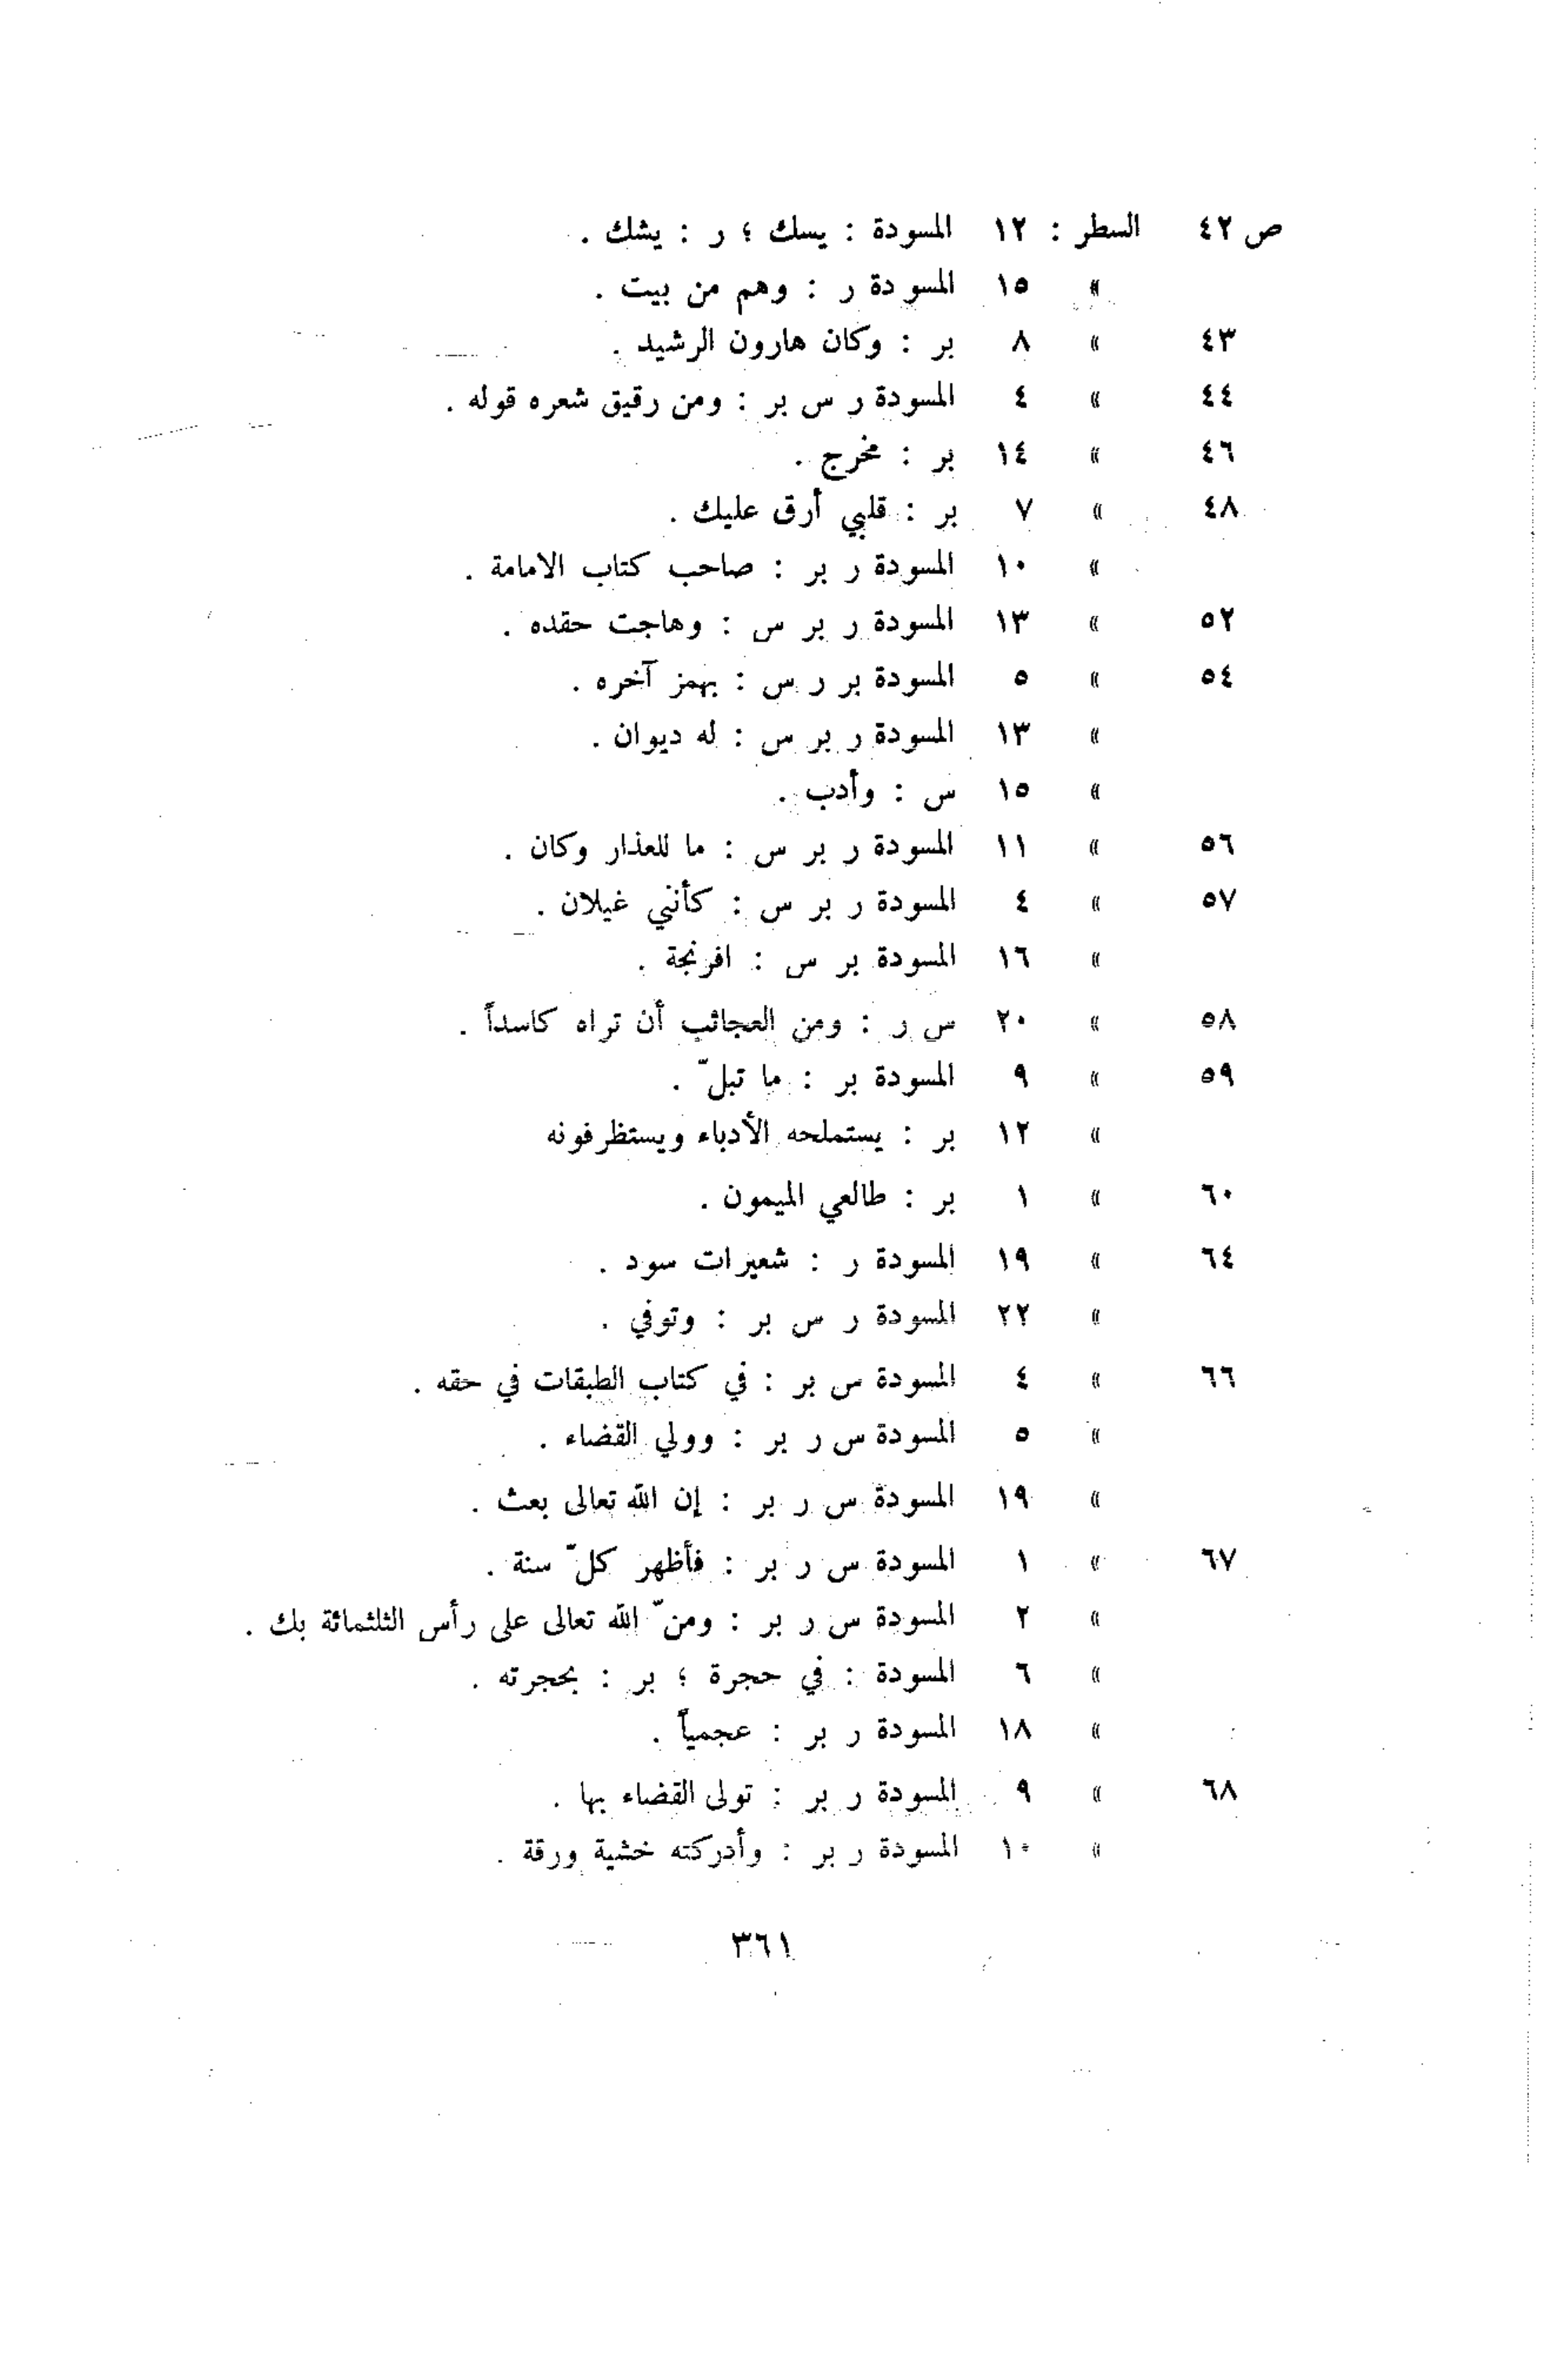 ص ٤٢ السطر : ١٢ المسودة : يسك ؛ ر : يشك .
» ١٥ المسودة ر : وهم من بيت .
٤٣ » ٨ بر : وكان هارون الرشيد .
٤٤ » ٤ المسودة ر س بر : ومن رقيق شعره قوله .
٤٦ » ١٤ بر : مخرج .
٤٨ » ٧ بر : قلبي أرق عليك .
» ١٠ المسودة ر بر : صاحب كتاب الامامة .
٥٢ » ١٣ المسودة ر بر س : وهاجت حقده .
٥٤ » ٥ المسودة بر ر س : بهمز آخره .
» ١٣ المسودة ر بر س : له ديوان .
» ١٥ س : وأدب .
٥٦ » ١١ المسودة ر بر س : ما للعذار وكان .
٥٧ » ٤ المسودة ر بر س : كأنني غيلان .
» ١٦ المسودة بر س : افرنجة .
٥٨ » ٢٠ س ر : ومن العجائب أن تراه كاسداً .
٥٩ » ٩ المسودة بر : ما تبلّ .
» ١٢ بر : يستملحه الأدباء ويستظرفونه
٦٠ » ١ بر : طالعي الميمون .
٦٤ » ١٩ المسودة ر : شعيرات سود .
» ٢٢ المسودة ر س بر : وتوفي .
٦٦ » ٤ المسودة س بر : في كتاب الطبقات في حقه .
» ٥ المسودة س ر بر : وولي القضاء .
» ١٩ المسودة س ر بر : إن الله تعالى بعث .
٦٧ » ١ المسودة س ر بر : فأظهر كلّ سنة .
» ٢ المسودة س ر بر : ومنّ الله تعالى على رأس الثلثمائة بك .
» ٦ المسودة : في حجرة ؛ بر : بحجرته .
» ١٨ المسودة ر بر : عجمياً .
٦٨ » ٩ المسودة ر بر : تولى القضاء بها .
» ١٠ المسودة ر بر : وأدركته خشية ورقة .
٣٦١